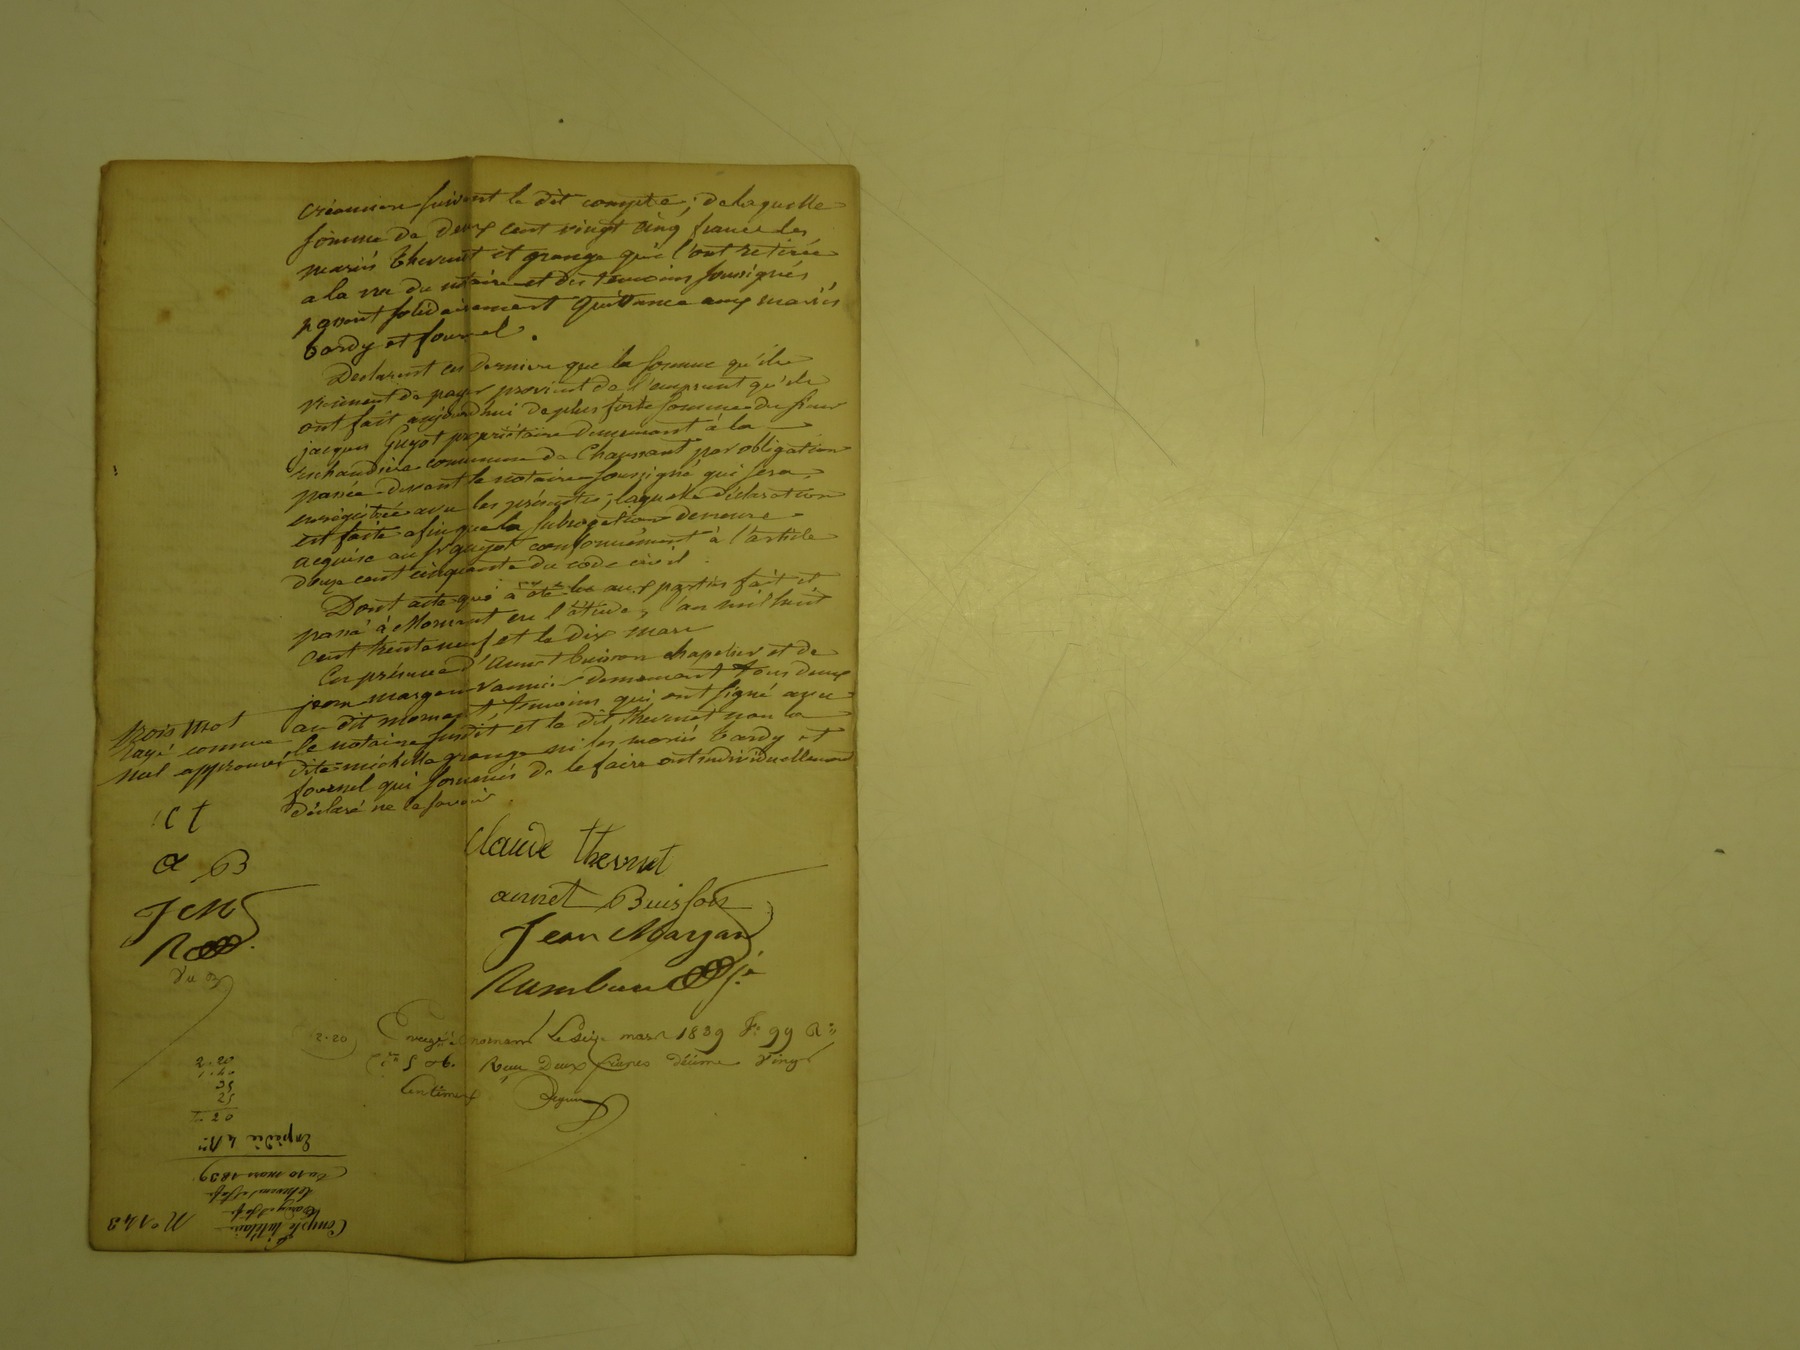 créanciere suivant le dit compte; de laquelle
somme de deux cent vingt cinq francs les
mariés thevenet et grange qui l'ont retirée
a la vue du notaire et des temoins soussignés
passent solidairement quittance aux mariés
tardy et fournel.
Declarent ces derniers que la somme qu'ils
viennent de payer provient de l'emprunt qu'ils
ont fait aujourd'hui de plus forte somme du sieur
jacques Guyot propriétaire demeurant à la
commune de Chaussant par obligation
passée devant le notaire soussigné qui sera
enregistrée avec les présentes; laquelle déclaration
est faite afin que la subrogation demeure
acquise au sr guyot conformément à l'article
douze cent cinquante du code civil.
Dont acte qui a été lu aux parties fait et
passé à Mornant en l'étude, l'an mil huit
cent trente neuf et le dix mars
En présence d'Annet buisson chapelier et de
jean margan vannier demeurant tous deux
au dit mornant témoins qui ont signé avec
le notaire susdit et le dit thevenet non la
dite michelle grange ni les mariés tardy et
fournel qui sommés de le faire ont individuellement
déclaré ne le savoir.
trois mot
rayé comme
nul approuvé
C t
a B
J M
R
Claude thevenet
annet Buisson
Jean Margan
(2.20) Enregé à mornant Le seize mars 1839 Fo 99 Ro
Cses 5 et 6. Reçu Deux francs décime Vingt
Centimes
2.20
1.40
35
25
4.20
Expédié le
Du 10 mars 1839
Compte tutélaire
Tardy et sa fe
thevenet et sa fe
No 143